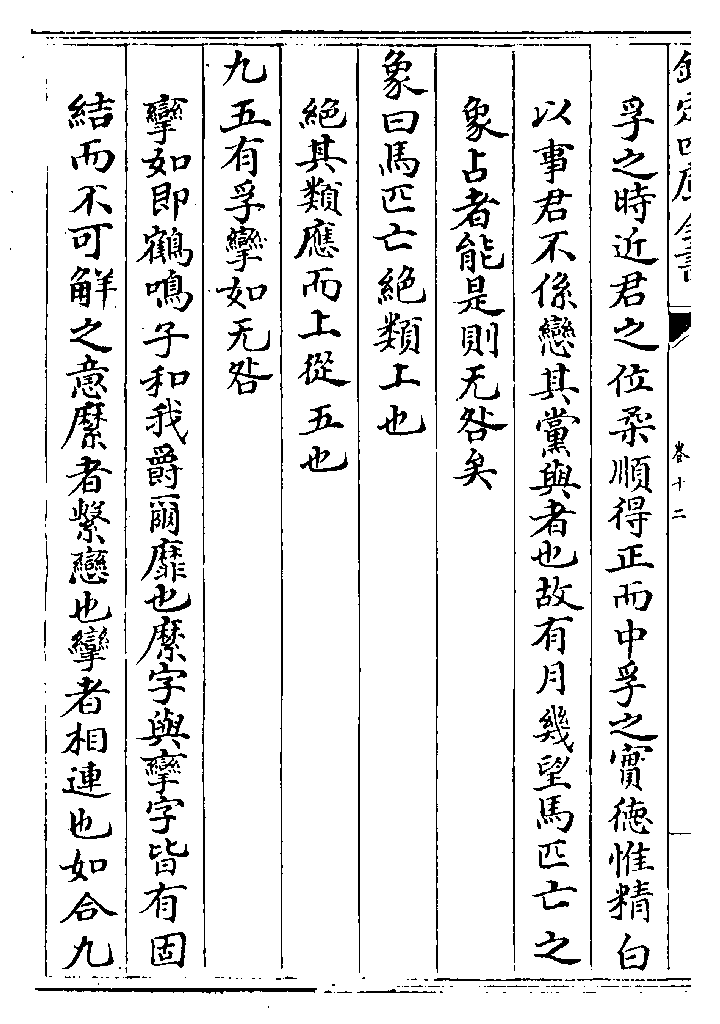 欽定四庫全書
卷十二
孚之時近君之位柔順得正而中孚之實德惟精白
以事君不係戀其黨與者也故有月幾望馬匹亡之
象占者能是則无咎矣
象曰馬匹亡絕類上也
絕其類應而上從五也
九五有孚攣如无咎
攣如即鶴鳴子和我爵爾靡也縻字與攣字皆有固
結而不可解之意縻者繫戀也攣者相連也如合九